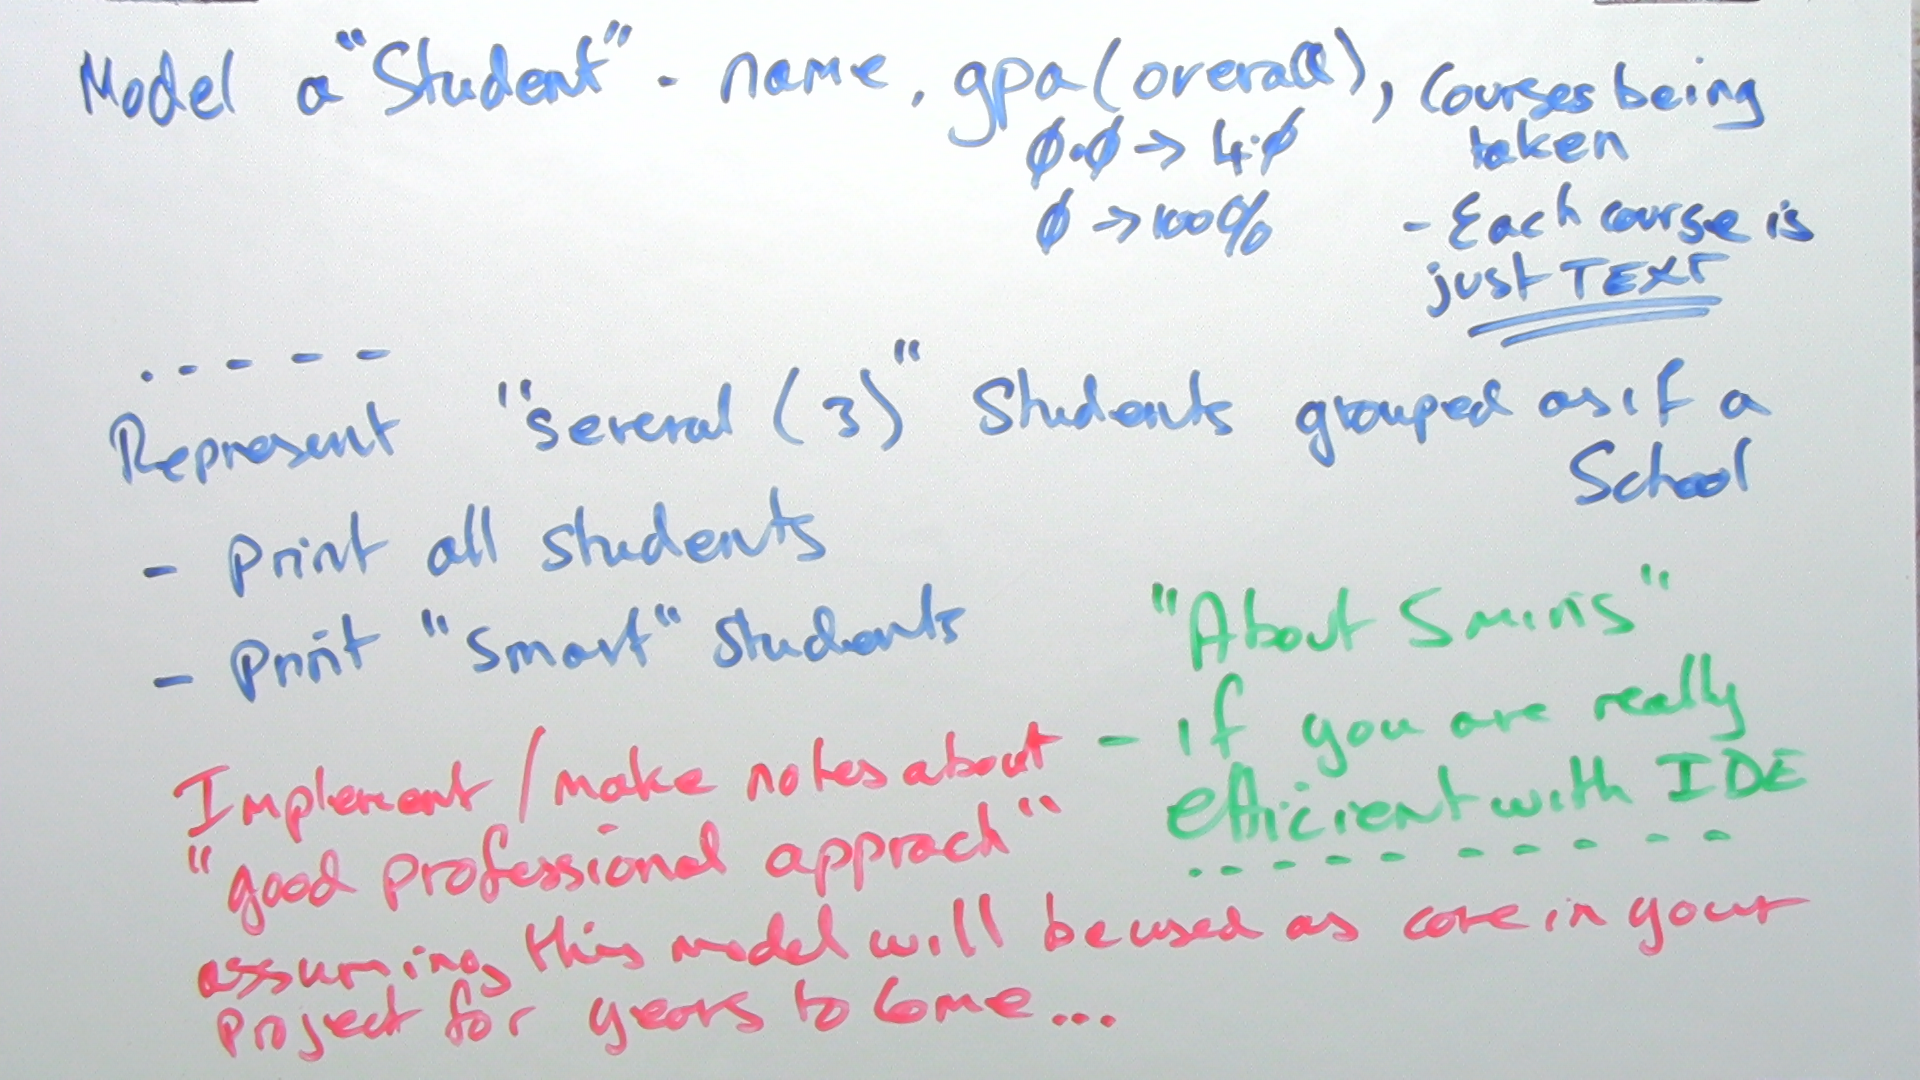 Model a "Student" - name, gpa(overall), Courses being
taken
0.0 → 4.0
0 → 100%
- Each course is
just TEXT
Represent "several (3)" Students grouped as if a
School
- Print all students
- Print "Smart" students
"About 5 mins"
- if you are really
efficient with IDE
Implement / make notes about
"good professional approach"
assuming this model will be used as core in your
Project for years to come...